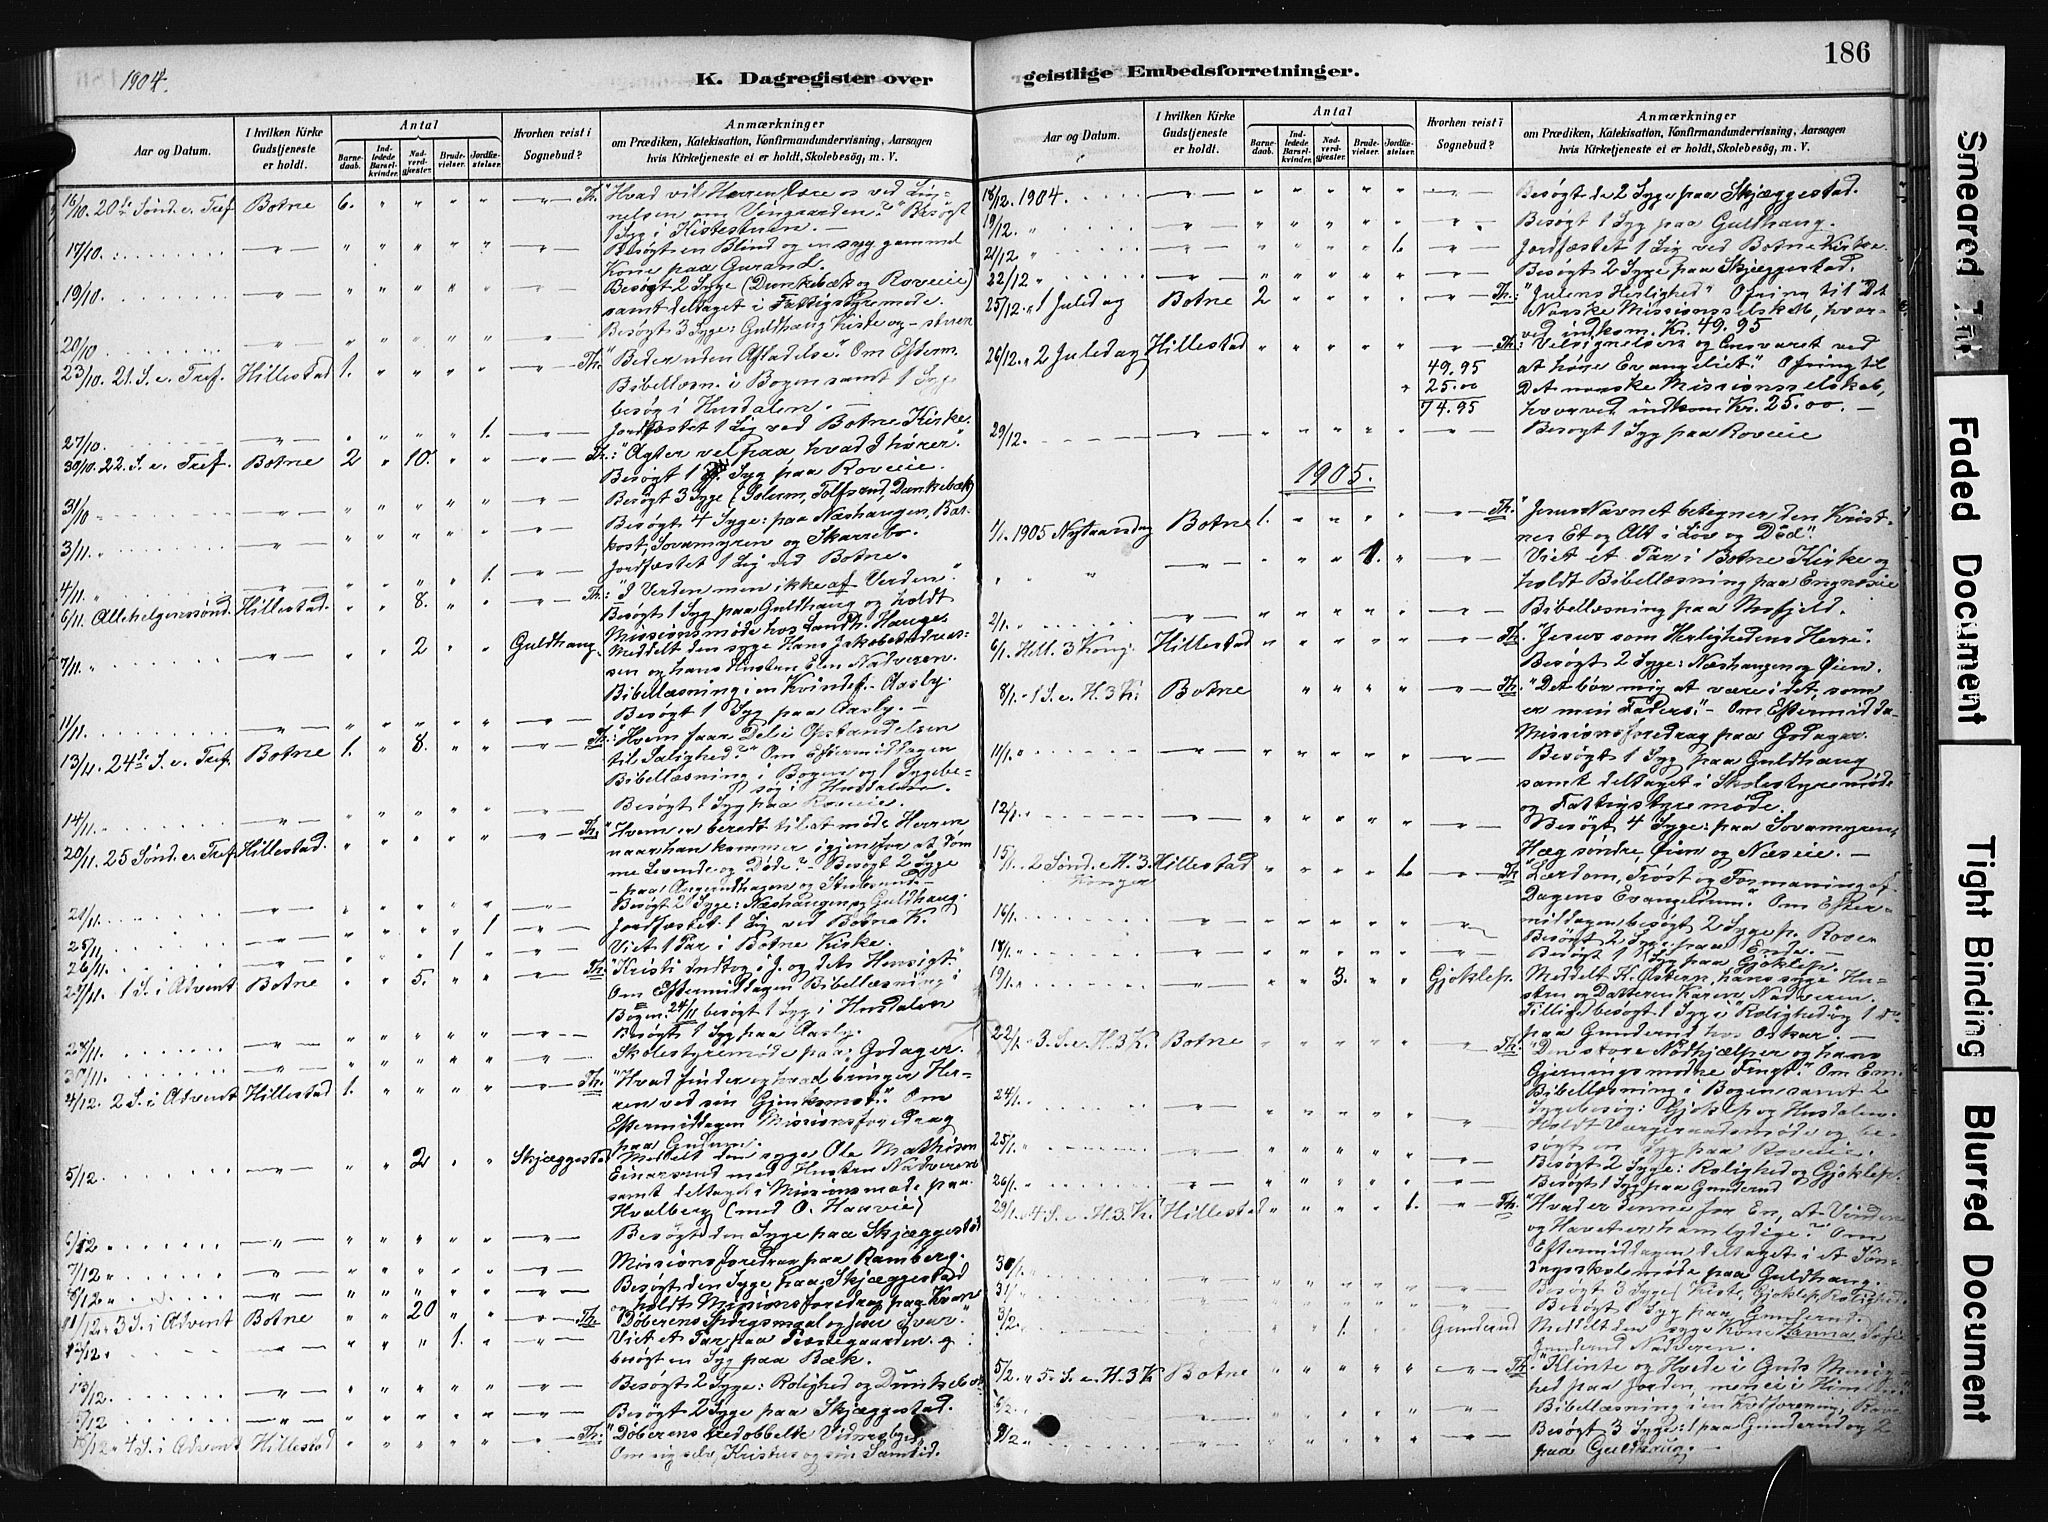 186
1904.
K. Dagregister over geistlige Embedsforretninger.
Aar og Datum.
I hvilken Kirke Gudstjeneste er holdt.
Antal
Barnedaab.
Indledede Barselkvinder.
Nadverdgjæster.
Brudevielser.
Jordfæstelser.
Hvorhen reist i Sognebud?
Anmærkninger
om Prædiken, Katekisation, Konfirmandundervisning, Aarsagen
hvis Kirketjeneste ei er holdt, Skolebesøg, m. V.
16/10. 20de Sønd. e. Tref. Botne 6. " " " " " Th. "Hvad vil Herren lære os ved Lignelsen om Vingaarden?" Besøgt
1 Syg i Kistestuen. —
17/10. " " " " " " " Besøgt en Blind og en syg gammel
Kone paa Gurand.
19/10. " " " " " " " Besøgt 2 Syge (Dunkebæk og Roveie)
samt deltaget i Fattigstyremøde.
20/10 Besøgt 3 Syge: Guldhaug, Kiste og - stuen
23/10. 21. S. e. Tref. Hillestad 1. " " " " " Th. "Beder uden Afladelse". Om Efterm.
Bibellæsn. i Bogen samt 1 Sygebesøg i Husdalen. —
27/10. " " " " " 1. " Jordfæstet 1 Lig ved Botne Kirke.
30/10. 22. S. e. Tref. Botne 2 " 10. " " " Th.: "Agter vel paa hvad I hører."
Besøgt 1 Syg paa Roveie.
31/10 " " " " " " " Besøgt 3 Syge (Solum, Tolfsrud, Dunkebæk)
3/11. Besøgt 4 Syge: paa Næshaugen, Barkost, Sovamyren og Skarrebo.
4/11. " " " " " 1. " Jordfæstet 1 Lig ved Botne.
6/11. Allehelgenssønd. Hillestad. " " 8. " " " Th.: "I Verden men ikke af Verden."
Besøgt 1 Syg paa Guldhaug og holdt
Missionsmøde hos Landh. Hauge.
7/11. " " " " 2 " " Guldhaug. Meddelt den syge Hans Jakob Andreassen og hans Hustru Elen Nadveren.
Bibellæsning i en Kvindef. - Aasly.
11/11. " " " " " " " Besøgt 1 Syg paa Aasly. —
13/11. 24de S. e. Tref. Botne 1. " 8. " " " Th.: "Hvem faar Del i Opstandelsen
til Salighed?" Om Eftermiddagen
Bibellæsning i Bogen og 1 Sygebesøg i Husdalen.
14/11. " " " " " " " Besøgt 1 Syg paa Roveie.
20/11. 25 Sønd. e. Tref. Hillestad. " " " " " " Th. "Hvem er beredt til at møde Herren
naar han kommer igjen for at dømme Levende og Døde?" Besøgt 2 Syge
- paa Aagerudhagen og Stubsrud. -
21/11. Besøgt 2 Syge: Næshaugen og Guldhaug.
25/11. " " " " " 1 " Jordfæstet 1 Lig ved Botne K.
26/11. " " " " 1 " " Viet 1 Par i Botne Kirke.
27/11. 1 S. i Advent Botne " " 5. " " " Th. "Kristi Indtog i J. og dets Hensigt."
Om Eftermiddagen Bibellæsning i
Bogen. 24/11 besøgt 1 Syg i Husdalen
28/11. " Besøgt 1 Syg paa Aasly.
30/11. " Skolestyremøde paa Godager.
4/12. 2 S. i Advent Hillestad 1. " " " " " Th. "Hvad finder og hvad bringer Herren ved sin Gjenkomst?" Om
Eftermiddagen Missionsforedrag
paa Gudum.
5/12. " " " 2 " " Skjæggestad Meddelt den syge Ole Mathison
Einarsrud med Hustru Nadveren
samt deltag. i Missionsmøde paa
Hvalberg (med O. Haavie)
6/12 " Besøgt den Syge paa Skjæggestad
7/12 " Missionsforedrag paa Ramberg.
8/12 " Besøgt den Syge paa Skjæggestad
og holdt Missionsforedrag paa Kvan
11/12. 3 S. i Advent Botne " " 20 " " " Th. "Døberens Spørgsmaal og Jesu Svar".
12/12. " " " " 1. " " Viet et Par paa Præstegaarden og
besøgt en Syg paa Bæk.
13/12. Besøgt 2 Syge: Rolighed og Dunkebæk.
Besøgt 2 Syge paa Skjæggestad.
18/12. 4 S. i Advent Hillestad " " " " " " Th. "Døberens tredobbelte Vidnesbyrd
Om sig selv, Kristus og sin Samtid.
Aar og Datum.
I hvilken Kirke Gudstjeneste er holdt.
Antal
Barnedaab.
Indledede Barselkvinder.
Nadverdgjæster.
Brudevielser.
Jordfæstelser.
Hvorhen reist i Sognebud?
Anmærkninger
om Prædiken, Katekisation, Konfirmandundervisning, Aarsagen
hvis Kirketjeneste ei er holdt, Skolebesøg, m. V.
18/12. 1904. " " " " " " " Besøgt de 2 Syge paa Skjæggestad.
19/12. " " " " " " " Besøgt 1 Syg paa Guldhaug.
21/12 " " " " " 1. " Jordfæstet 1 Lig ved Botne Kirke.
22/12 " " " " " " " Besøgt 2 Syge paa Skjæggestad.
25/12. " 1 Juledag Botne 2 " " " " " Th: "Julens Herlighed" Ofring til Det
Norske Missionsselskab, hvorved indkom. Kr. 49.95
26/12. " 2 Juledag Hillestad " " " " " " Th: "Velsignelsen og Ansvaret ved
49.95 at høre Evangeliet." Ofring til
25.00 Det norske Missionsselskab,
74.95 hvorved indkom Kr. 25.00. —
29/12. " " " " " " " Besøgt 1 Syg paa Roveie
1905.
1/1. 1905 Nytaarsdag Botne 1. " " " " " Th. "Jesu Navnet betegner den Kristnes Et og Alt i Liv og Død".
" " " " " " 1. " " Viet et Par i Botne Kirke og
holdt Bibellæsning paa Engnæsie
2/1. " " " " " " " Bibellæsning paa Mofjeld.
6/1. Hell. 3 Kong. Hillestad " " " " " " Th: "Jesus som Herlighedens Herre".
Besøgt 2 Syge: Næshaugen og Øien.
8/1. " 1 S. e. H. 3 K. Botne " " " " " Th: "Det bør mig at være i det, som
er min Faders." - Om Eftermidda.
Missionsforedrag paa Godager.
11/1. " Besøgt 1 Syg paa Guldhaug
samt deltaget i Skolestyremøde
og Fattigstyremøde.
12/1. Besøgt 4 Syge: paa Sovamyren,
Hæg søndre, Øien og Næseie. —
15/1. 2 Sønd. e. H. 3 Konger Hillestad " " " " 1. " Th "Lærdom, Trøst og Formaning af
Dagens Evangelium". Om Eftermiddagen besøgt 2 Syge p. Roveie
16/1. Besøgt 2 Syge paa
18/1. Besøgt 1 Syg paa Gjøklep.
19/1. " " " 3. " " Gjøklep. Meddelt K. Østern, hans syge Hustru og Datteren Karen Nadveren.
Tillige besøgt 1 Syg i Rolighed og 1 do
paa Gunderud hos Oskar. —
22/1. 3 S. e. H. 3 K. Botne " " " " " " Th. "Den store Nødhjælper og hans
Gjernings modne Frugt." Om Em.
Bibellæsning i Bogen samt 2
Sygebesøg: Gjøklep og Husdalen.
24/1. Holdt Værgeraadsmøde og besøgt en Syg paa Roveie.
25/1. Besøgt 2 Syge: Rolighed og Gjøklep.
26/1. Besøgt 1 Syg paa Gunderud
29/1. 4 S. e. H. 3 K. Hillestad " " " " 1. " Th. "Hvad er denne for En, at Vindene
og Havet er ham lydige?" Om
Eftermiddagen deltaget i et Søndagsskolemøde paa Guldhaug.
30/1. Besøgt 3 Syge (Kiste, Gjøklep, Rolighed)
31/1. Besøgt 1 Syg paa Gunderud.
3/2. " " " 1. " " Gunderud Meddelt den syge Kone Hanna
Gunderud Nadveren.
5/2. " 5 S. e. H. 3 K. Botne " " " " " " Th "Klinte og Hvede i Guds Menighed paa Jorden, men ei i Himlen".
6/2. Bibellæsning i en Kvdforening,
8/2. Besøgt 3 Syge: 1 paa Gunderud og 2
paa Guldhaug. —
Smeared Ink
Faded Document
Tight Binding
Blurred Document